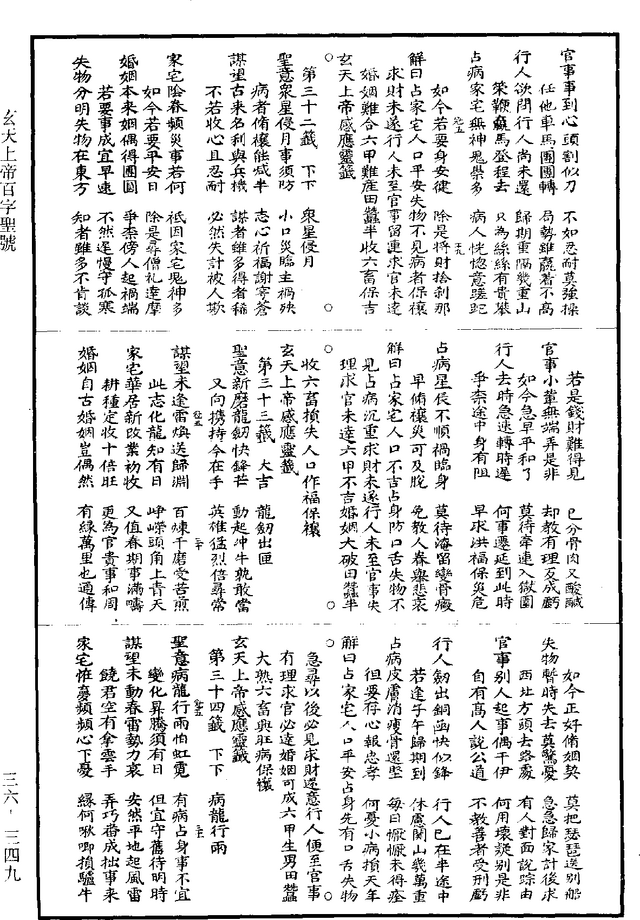 官事事到心頭割似刀　不如忍耐莫強操
任他車馬團團轉　局勢雖贏著不高
行人欲問行人尚未還　歸期重隔幾重山
馬登程去　只為絲絲有貴
占病家宅無神鬼祟多　病人恍惚意蹉跎
如今若要身安健　除是將財捨剎那
解曰占家宅人口平安失物不見病者保禳
求財未遂行人未至官事留連求官未達
婚姻難合六甲難産田蠶半收六畜保吉
玄天上帝感應靈籤
第三十二籤　下下　衆星侵月
聖意衆星侵月事須防　小口災臨主禍殃
病者脩禳能減半　志心祈福謝穹蒼
謀望古來名利與兵機　謀者雖多得者稀
不若收心且忍耐　必然失計被人欺
家宅陰眷頻災事若何　祇因家宅鬼神多
如今若要平安日　除是尋僧礼達摩
婚姻本來姻偶得團圓　爭柰傍人起禍端
若要事成宜早速　不然遲慢守孤寒
失物分明失物在東方　知者雖多不肯談
若是錢財難得見　已分骨肉又酸鹹
官事小輩無端弄是非　却教有理反成虧
如今急早平和了　莫待牽連入獄圍
行人去時急速轉時遲　何事遷延到此時
爭柰途中身有阻　早求洪福保災危
占病星辰不順禍臨身　莫待淹留變骨癥
早脩禳災可及脫　免教人眷舉悲哀
解曰占家宅人口不吉占身防口舌失物不
見占病沉重求財未遂行人未至官事失
理求官未達六甲不吉婚姻大破田蠶半
收六畜損失人口作福保禳
玄天上帝感應靈籤
第三十三籤　大吉　龍劒出匣
聖意新磨龍劒快鋒芒　動起冲牛孰敢當
又向携持今在手　英雄猛烈倍尋常
謀望未逢雷煥送歸淵　百煉千磨受苦煎
此志化龍知有日　崢嶸頭角上青天
家宅華居新改業初收　又值春期事滿疇
耕種定收十倍旺　更為官貴事和周
婚姻自古婚姻豈偶然　有緣萬里也通傳
如今正好脩姻契　莫把琵琶送別船
失物暫時失去莫驚憂　急急歸家計後求
西北方頭去路處　有人對面說踪由
官事別人起事偶干伊　何用壞疑別是非
自有高人說公道　不教善者受刑虧
行人劒出銅函快似鋒　行人已在半途中
若逢子午歸期到　休慮關山幾萬重
占病皮膚消瘦骨還堅　每日懨懨未得痊
但要存心報忠孝　何憂小病損天年
解曰占家宅人口平安占身先有口舌失物
急尋以後必見求財還意行人便至官事
有理求官必達婚姻可成六甲生男田蠶
大熟六畜興旺病保禳
玄天上帝感應靈籤
第三十四籤　下下　病龍行雨
聖意病龍行雨怕虹霓　有病占身事不宜
變化昇騰須有日　但宜守舊待明時
謀望未動春雷勢力衰　安然平地起風雷
饒君空有拿雲手　弄巧番成拙事來
家宅惟憂頻頻心下憂　緣何啾唧損驢牛
玄天上帝百字聖號
三六‧三四九